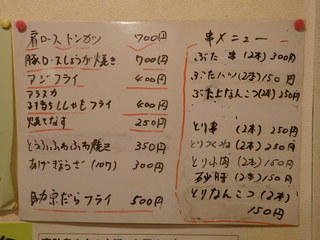 肩ローストンカツ 700円
豚ロースしょうが焼き 700円
アジフライ 400円
アラスカ
子持ちししゃもフライ 400円
焼きなす 250円
とうふふわふわ焼き 350円
あげぎょうざ(10ケ) 300円
助宗だらフライ 500円
串メニュー
ぶた串(2本)300円
ぶたハツ(2本)150円
ぶた上なんこつ(2本)250円
とり串(2本)250円
とりつくね(2本)250円
とり小肉(2本)150円
砂肝(2本)150円
とりなんこつ(2本)
150円